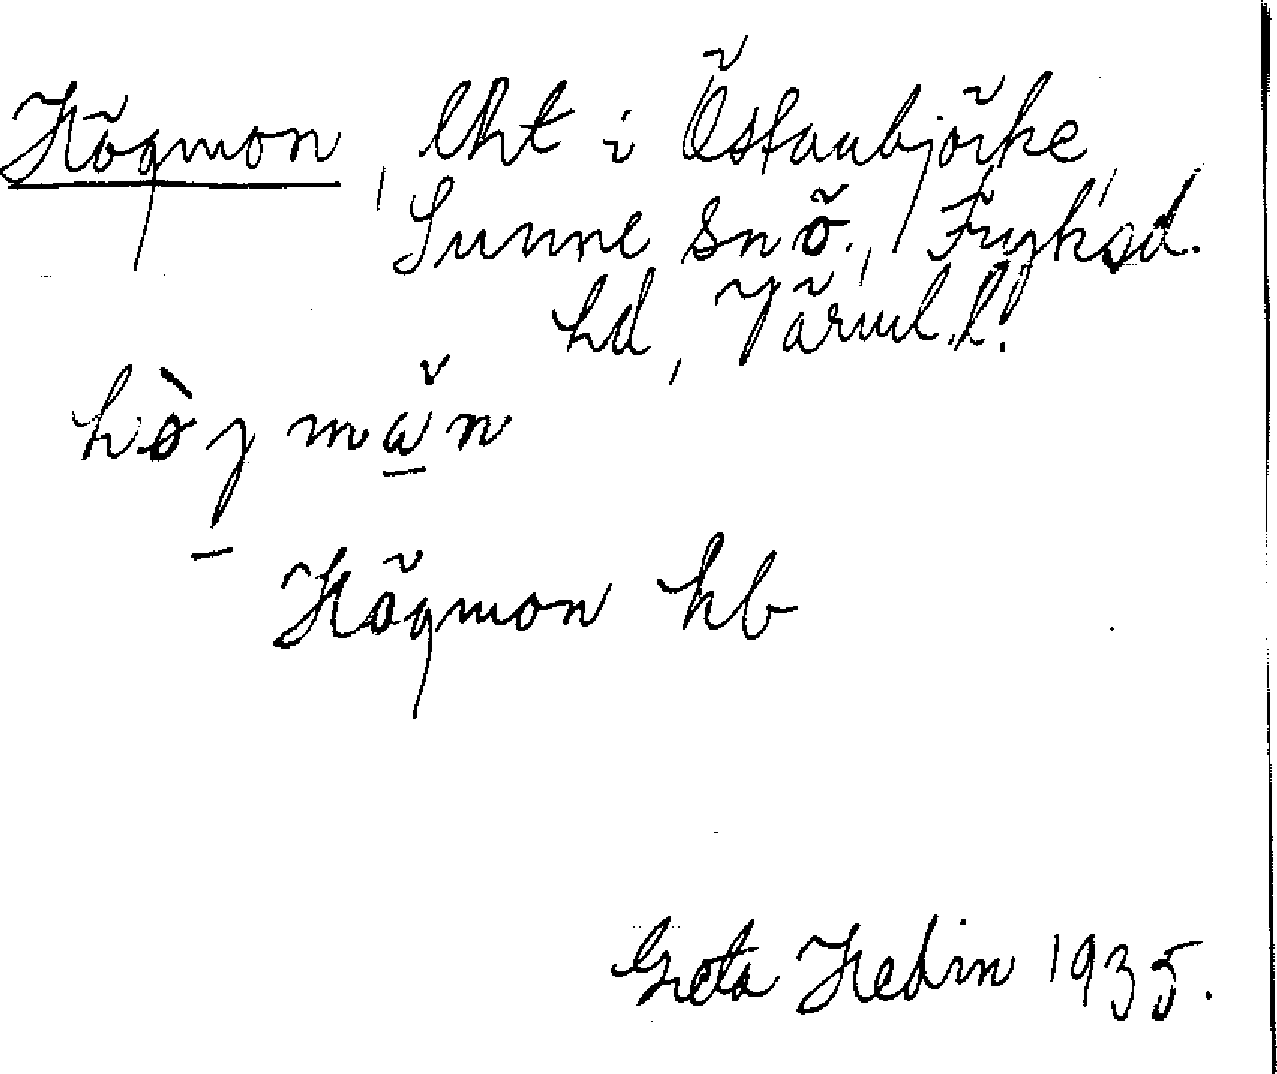 Högmon, lht i Östanbjörke,
Sunne snö., Fryksd.
hd, Värml. l.
hø̀gmån
Högmon kb
Greta Hedin 1935.